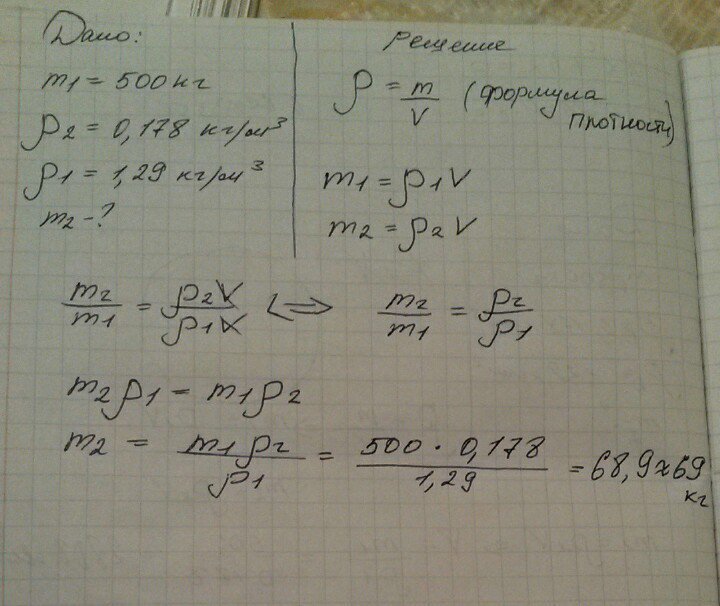 Дано:
m1 = 500 кг
ρ2 = 0,178 кг/м³
ρ1 = 1,29 кг/м³
m2 - ?
Решение
ρ = m/V (формула
плотности)
m1 = ρ1 V
m2 = ρ2 V
m2/m1 = ρ2V/ρ1V <=> m2/m1 = ρ2/ρ1
m2 ρ1 = m1 ρ2
m2 = m1 ρ2/ρ1 = 500 · 0,178/1,29 = 68,9 ≈ 69
кг